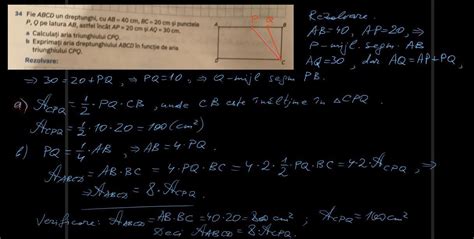 34 Fie ABCD un dreptunghi, cu AB = 40 cm, BC = 20 cm și punctele
P, Q pe latura AB, astfel încât AP = 20 cm și AQ = 30 cm.
a Calculați aria triunghiului CPQ.
b Exprimați aria dreptunghiului ABCD în funcție de aria
triunghiului CPQ.
Rezolvare:
A P Q B
D C
Rezolvare.
AB=40, AP=20, ⇒
P-mijl. segm. AB
AQ=30, dar AQ=AP+PQ,
⇒ 30=20+PQ, ⇒ PQ=10, ⇒ Q-mijl segm PB.
a) A_CPQ = 1/2 · PQ · CB, unde CB este înălțime în △CPQ.
A_CPQ = 1/2 · 10 · 20 = 100 (cm²)
b) PQ = 1/4 · AB, ⇒ AB = 4·PQ.
A_ABCD = AB·BC = 4·PQ·BC = 4·2·1/2·PQ·BC = 4·2·A_CPQ, ⇒
⇒ A_ABCD = 8·A_CPQ.
Verificare: A_ABCD = AB·BC = 40·20 = 800 cm² ; A_CPQ = 100 cm²
Deci A_ABCD = 8·A_CPQ.